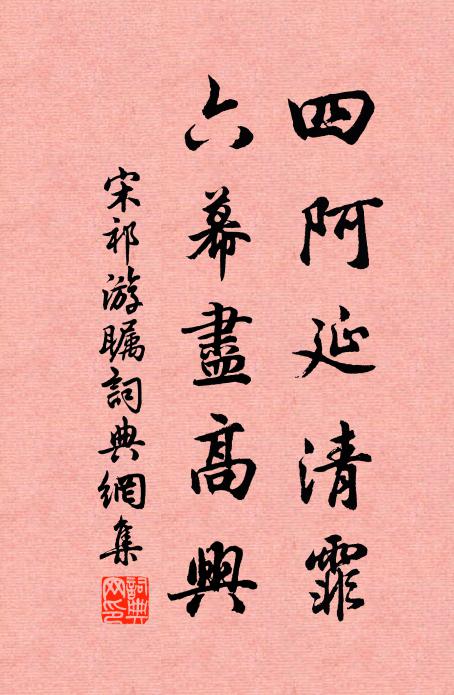 四阿延清霏
六幕盡高興
宋祁游瞩詞典網集
詞典網印